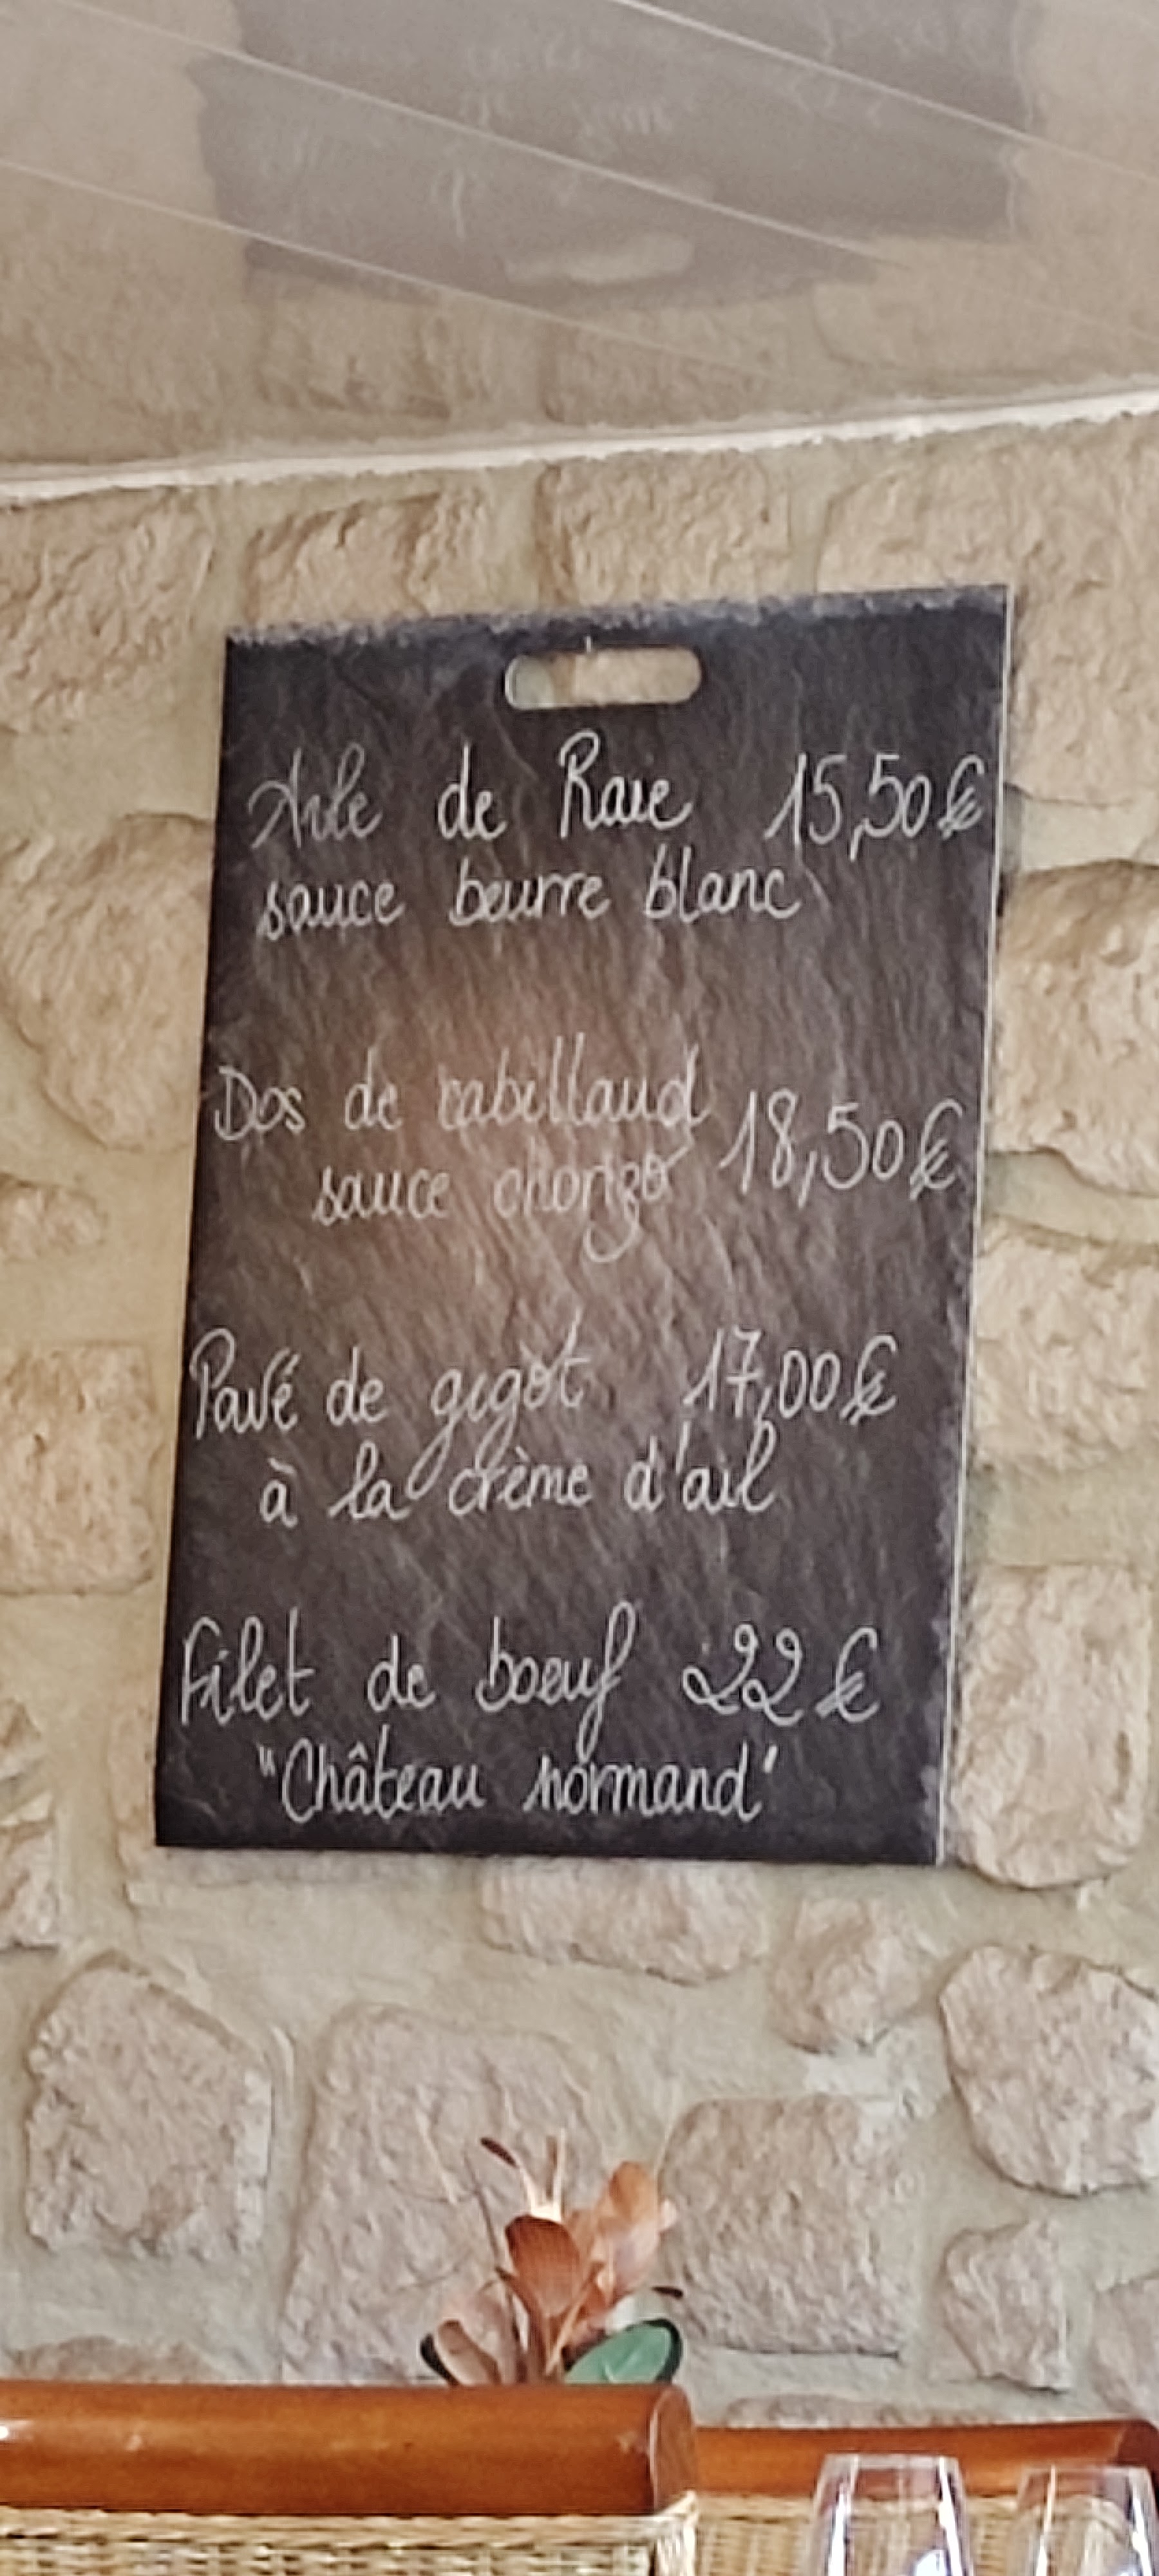 Aile de Raie 15,50€
sauce beurre blanc
Dos de cabillaud 18,50€
sauce chorizo
Pavé de gigot 17,00€
à la crème d'ail
Filet de boeuf 22€
"Château normand"